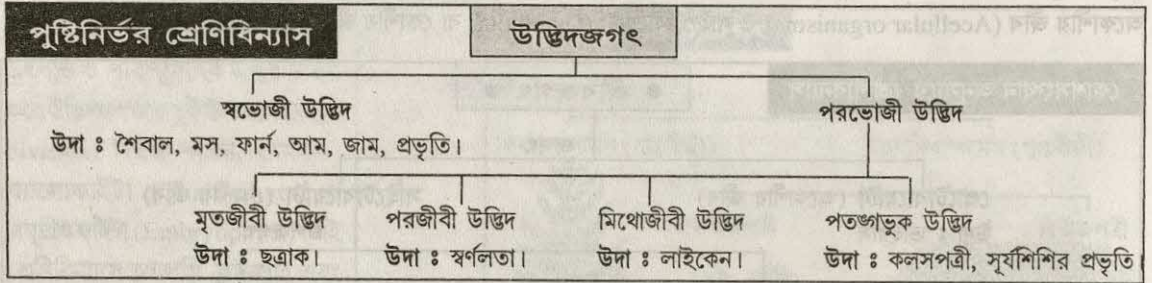 অকোশীয় জীব (Acellular organism)
পুষ্টিনির্ভর শ্রেণিবিন্যাস
উদ্ভিদজগৎ
স্বভোজী উদ্ভিদ
উদা ঃ শৈবাল, মস, ফার্ন, আম, জাম, প্রভৃতি।
পরভোজী উদ্ভিদ
মৃতজীবী উদ্ভিদ
উদা ঃ ছত্রাক।
পরজীবী উদ্ভিদ
উদা ঃ স্বর্ণলতা।
মিথোজীবী উদ্ভিদ
উদা ঃ লাইকেন।
পতঙ্গভুক উদ্ভিদ
উদা ঃ কলসপত্রী, সূর্যশিশির প্রভৃতি।